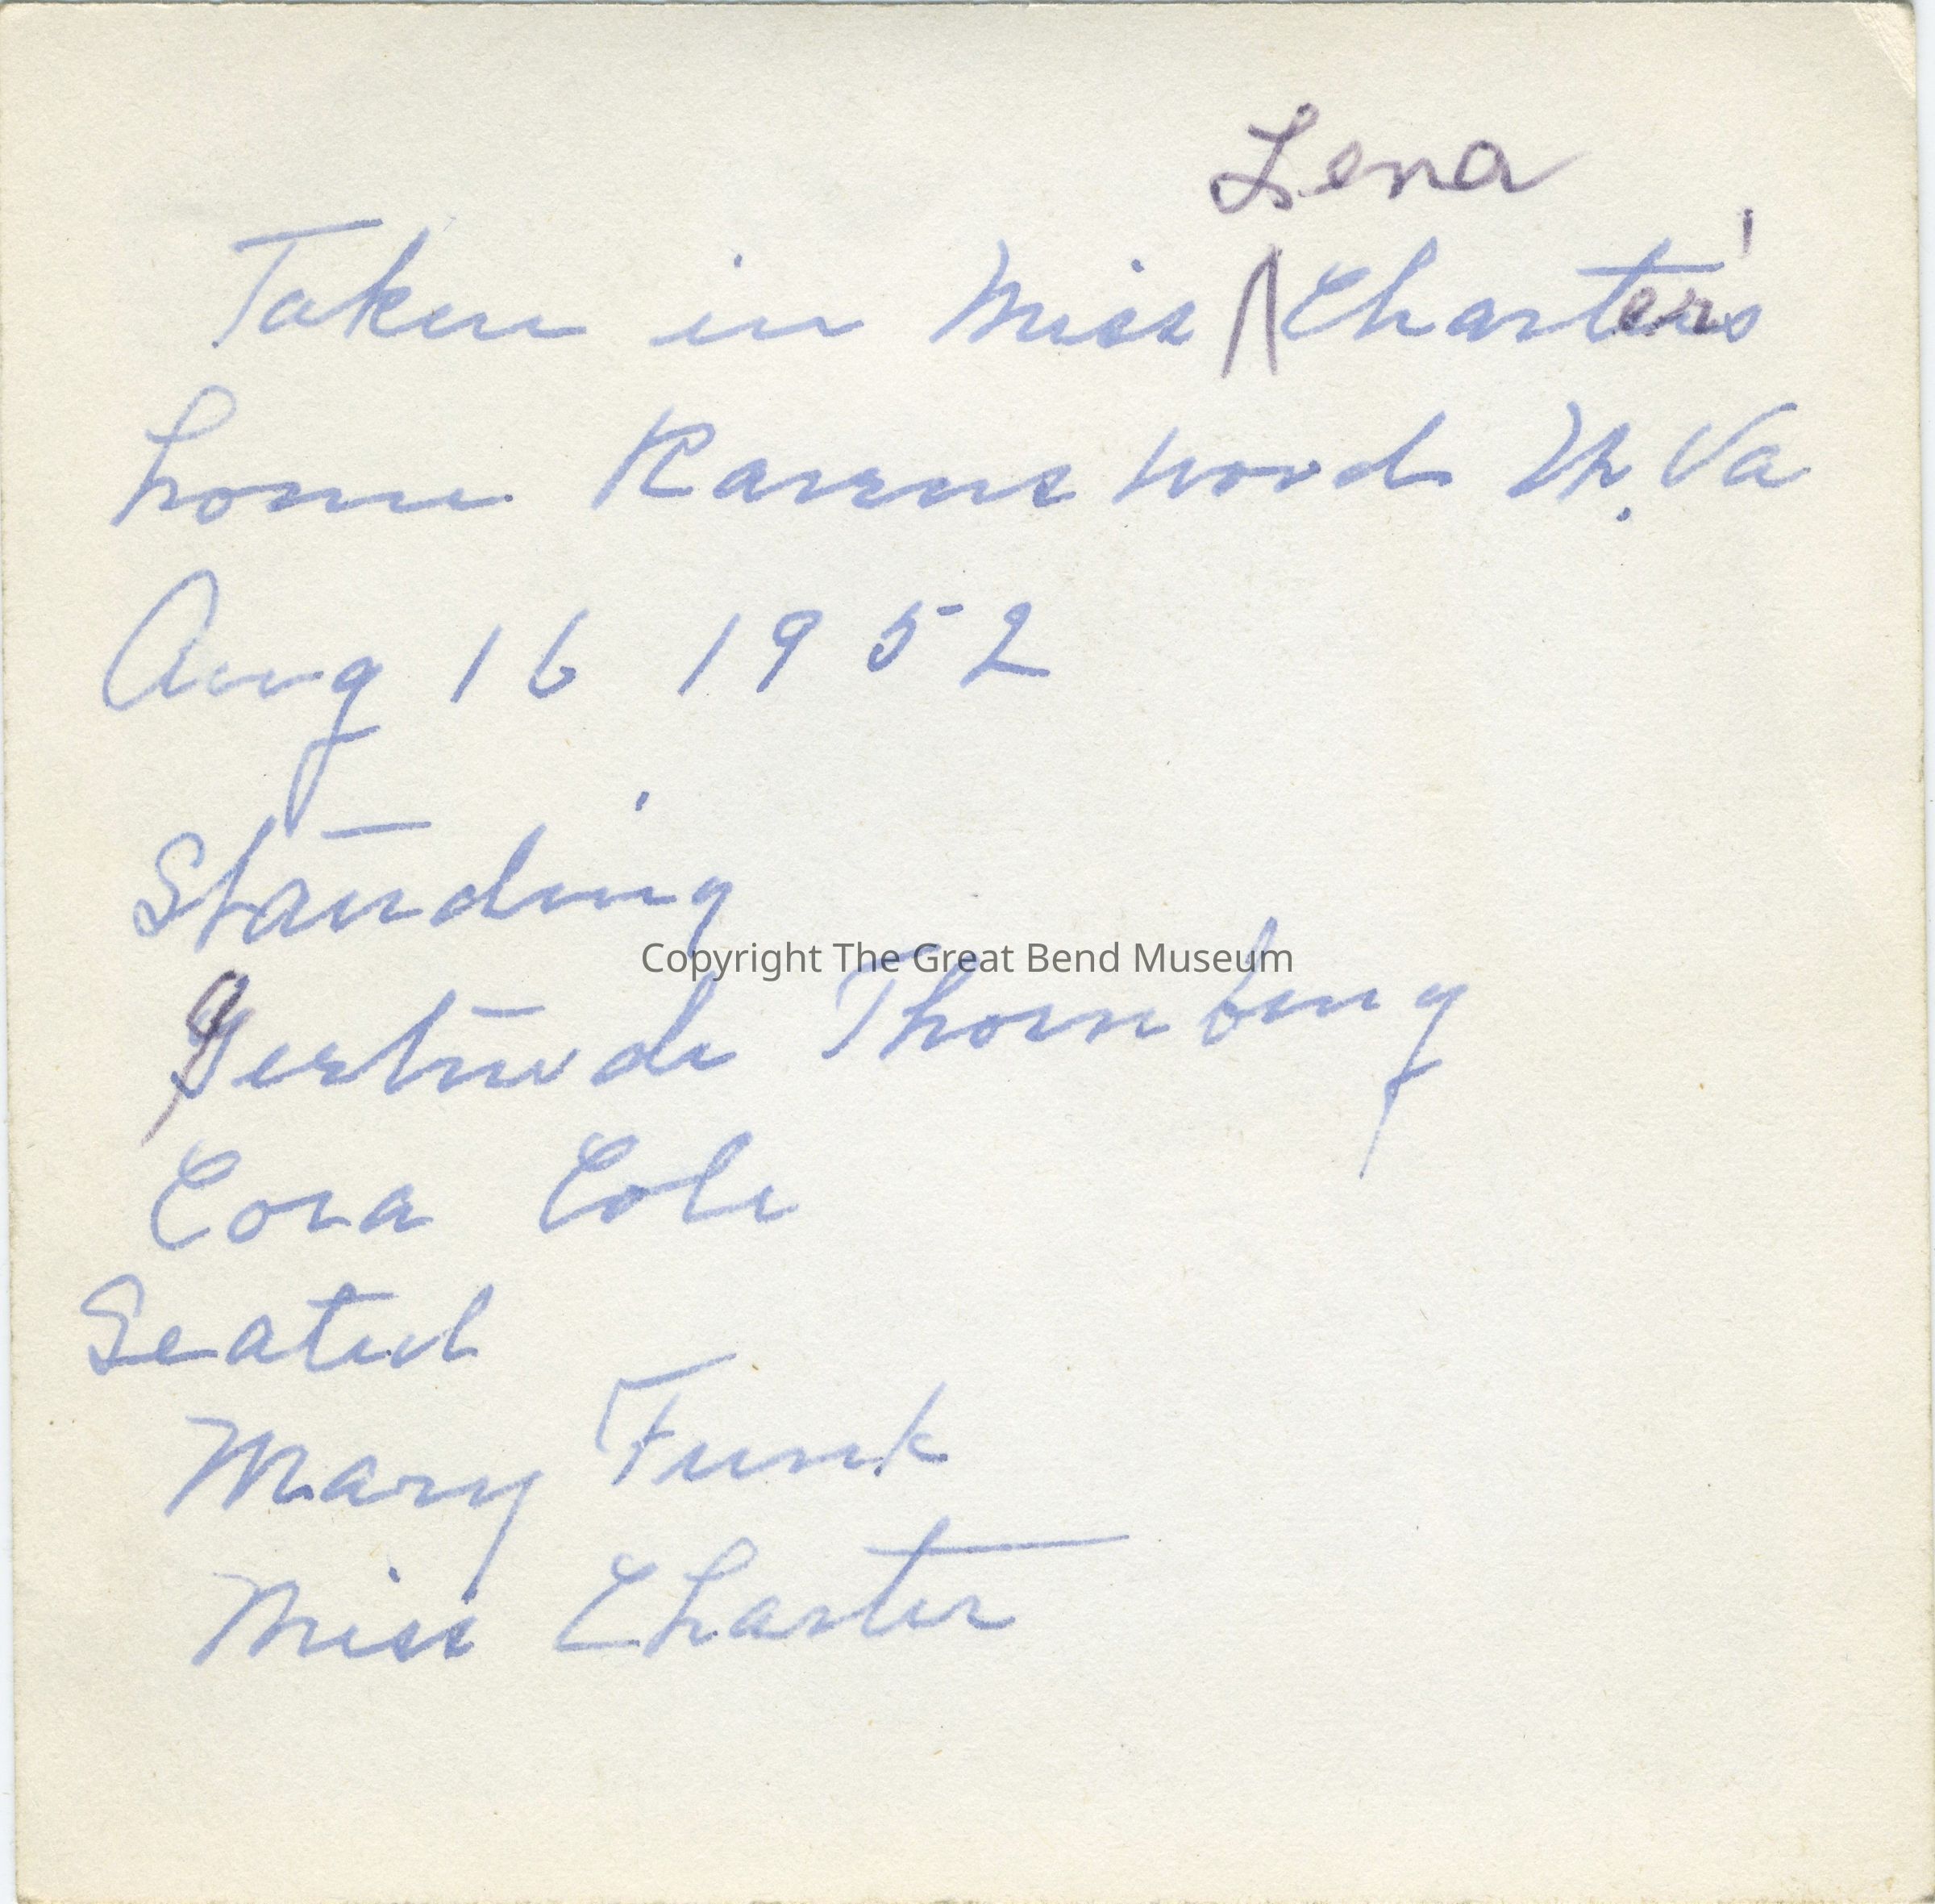 Lena
Taken in Miss ∧ Charter's
home Ravenswood W. Va
Aug 16 1952
Standing
Copyright The Great Bend Museum
Gertrude Thornbury
Cora Cole
Seated
Mary Funk
Miss Charter